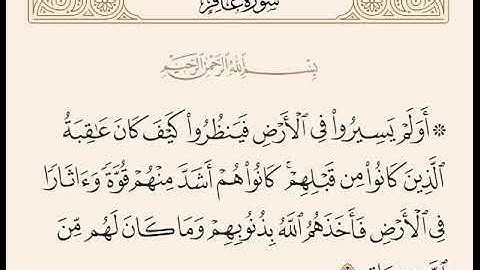 سورة غافر
بِسْمِ اللَّهِ الرَّحْمَٰنِ الرَّحِيمِ
۞ أَوَلَمْ يَسِيرُوا۟ فِى ٱلْأَرْضِ فَيَنظُرُوا۟ كَيْفَ كَانَ عَٰقِبَةُ
ٱلَّذِينَ كَانُوا۟ مِن قَبْلِهِمْ ۚ كَانُوا۟ هُمْ أَشَدَّ مِنْهُمْ قُوَّةً وَءَاثَارًا
فِى ٱلْأَرْضِ فَأَخَذَهُمُ ٱللَّهُ بِذُنُوبِهِمْ وَمَا كَانَ لَهُم مِّنَ